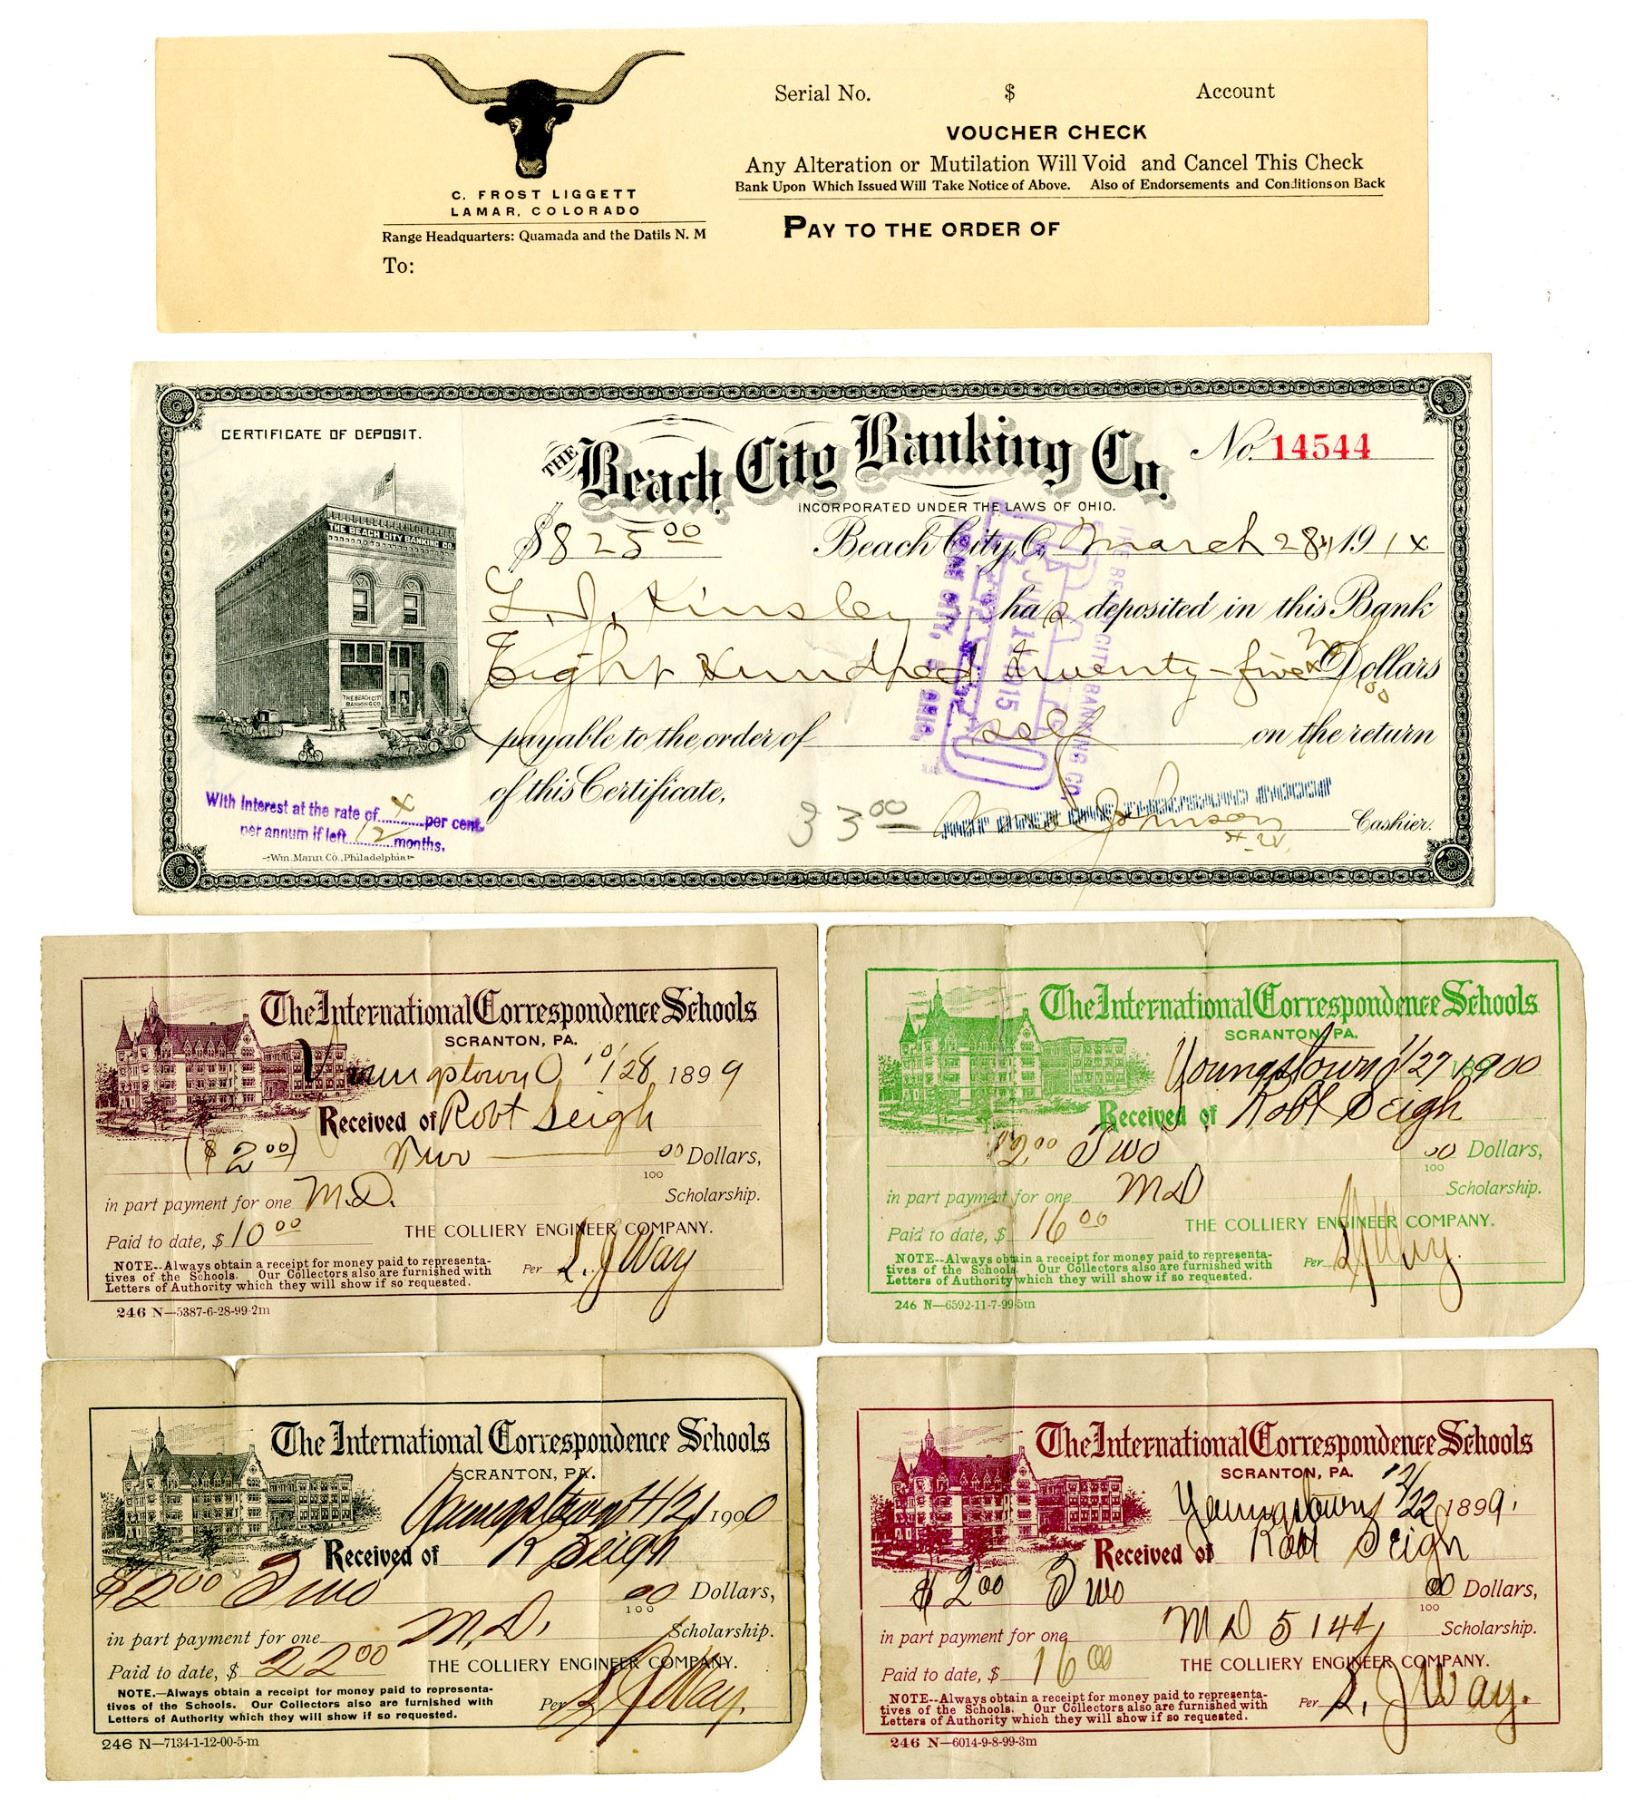 Serial No. $ Account
VOUCHER CHECK
Any Alteration or Mutilation Will Void and Cancel This Check
Bank Upon Which Issued Will Take Notice of Above. Also of Endorsements and Conditions on Back
C. FROST LIGGETT
LAMAR, COLORADO
Range Headquarters: Quamada and the Datils N. M
PAY TO THE ORDER OF
To:
CERTIFICATE OF DEPOSIT.
THE Beach City Banking Co.
No. 14544
INCORPORATED UNDER THE LAWS OF OHIO.
THE BEACH CITY BANKING CO.
$825 00 Beach City, O. March 28, 191x
L. J. Kinsley has deposited in this Bank
Eight Hundred Twenty-five no/00 Dollars
THE BEACH CITY BANKING CO.
payable to the order of self on the return
of this Certificate,
With Interest at the rate of 4 per cent.
per annum if left 12 months.
33 00 Johnson Cashier.
Wm. Mann Co., Philadelphia
THE BEACH CITY BANKING CO.
PAID
The International Correspondence Schools
SCRANTON, PA.
Youngstown O 10/28 1899
Received of Robt Seigh
($2 00) Two 00/100 Dollars,
in part payment for one M.D. Scholarship.
Paid to date, $ 10 00 THE COLLIERY ENGINEER COMPANY.
NOTE--Always obtain a receipt for money paid to representa-
tives of the Schools. Our Collectors also are furnished with
Letters of Authority which they will show if so requested.
Per L. J Way
246 N—5387-6-28-99-2m
The International Correspondence Schools
SCRANTON, PA.
Youngstown 1/27 1900
Received of Robt Seigh
$2 00 Two 00/100 Dollars,
in part payment for one MD Scholarship.
Paid to date, $ 16 00 THE COLLIERY ENGINEER COMPANY.
NOTE--Always obtain a receipt for money paid to representa-
tives of the Schools. Our Collectors also are furnished with
Letters of Authority which they will show if so requested.
Per L J Way.
246 N—6592-11-7-99-5m
The International Correspondence Schools
SCRANTON, PA.
Youngstown 4/21 1900
Received of R Seigh
$2 00 Two 00/100 Dollars,
in part payment for one M.D. Scholarship.
Paid to date, $ 22 00 THE COLLIERY ENGINEER COMPANY.
NOTE.—Always obtain a receipt for money paid to representa-
tives of the Schools. Our Collectors also are furnished with
Letters of Authority which they will show if so requested.
Per L J Way.
246 N—7134-1-12-00-5-m
The International Correspondence Schools
SCRANTON, PA.
Youngstown 12/22 1899.
Received of Robt Seigh
$ 2 00 Two 00/100 Dollars,
in part payment for one M D 5144 Scholarship.
Paid to date, $ 16 00 THE COLLIERY ENGINEER COMPANY.
NOTE--Always obtain a receipt for money paid to representa-
tives of the Schools. Our Collectors also are furnished with
Letters of Authority which they will show if so requested.
Per L. J Way.
246 N—6014-9-8-99-3m